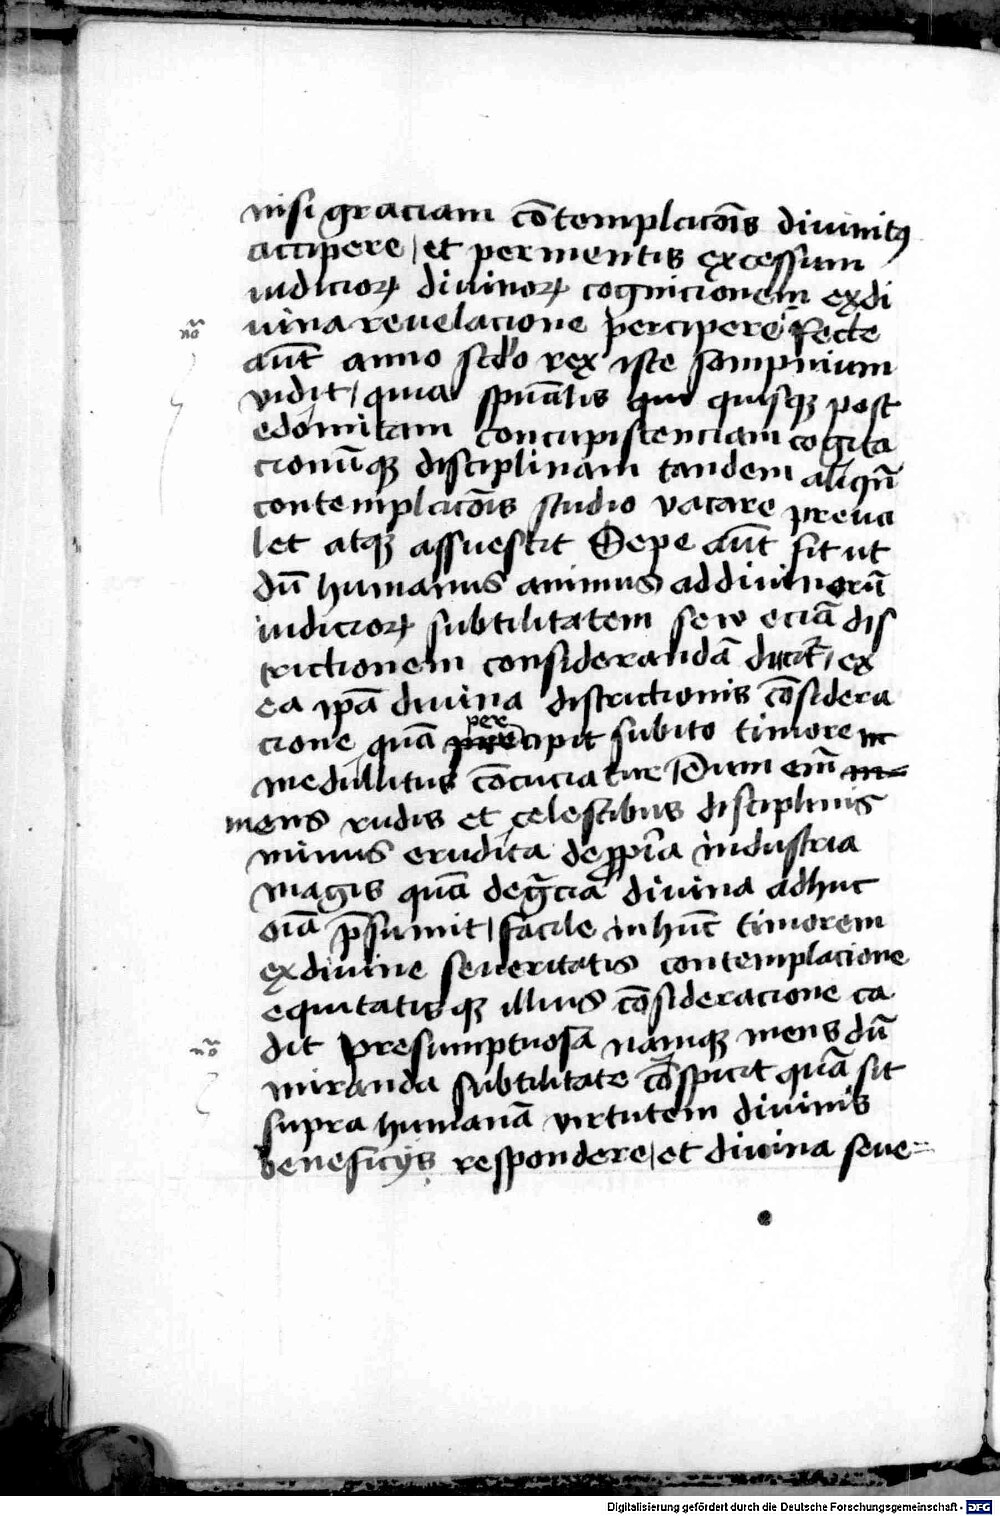 nisi graciam cōtemplacōis diuinitꝰ
accipere / et per mentis excessum
iudicioꝝ diuinoꝝ cognicionem ex di
uina reuelacione percipere Recte
nō
aūt anno scd̄o rex iste sompnium
vidit / quia spūalis qui quisqꝫ post
edomitam concupiscenciam cogita
cionūqꝫ disciplinam tandem aliqn̄
contemplacōis studio vacare preua
let atqꝫ assuescit Sepe aūt fit ut
dū humanus animus ad diuinorū
iudicioꝝ subtilitatem seu eciā dis
trictionem considerandā / ex
ea ip̄a diuina districtionis cōsidera
cione quā percipit subito timore
medullitus cōcuciatur Dum em̄
mens rudis et celestibus disciplinis
minus erudita de ꝓpria industria
magis quā de gr̄cia diuina adhuc
oīa p̄sumit / facile in hūc timorem
ex diuine seueritatis contemplacione
equitatisqꝫ illius cōsideracione ca
dit presumptuosa namqꝫ mens dū
nō
miranda subtilitate cōspicit quā sit
supra humanā virtutem diuinis
beneficijs respondere / et diuina seue=
Digitalisierung gefördert durch die Deutsche Forschungsgemeinschaft - DFG